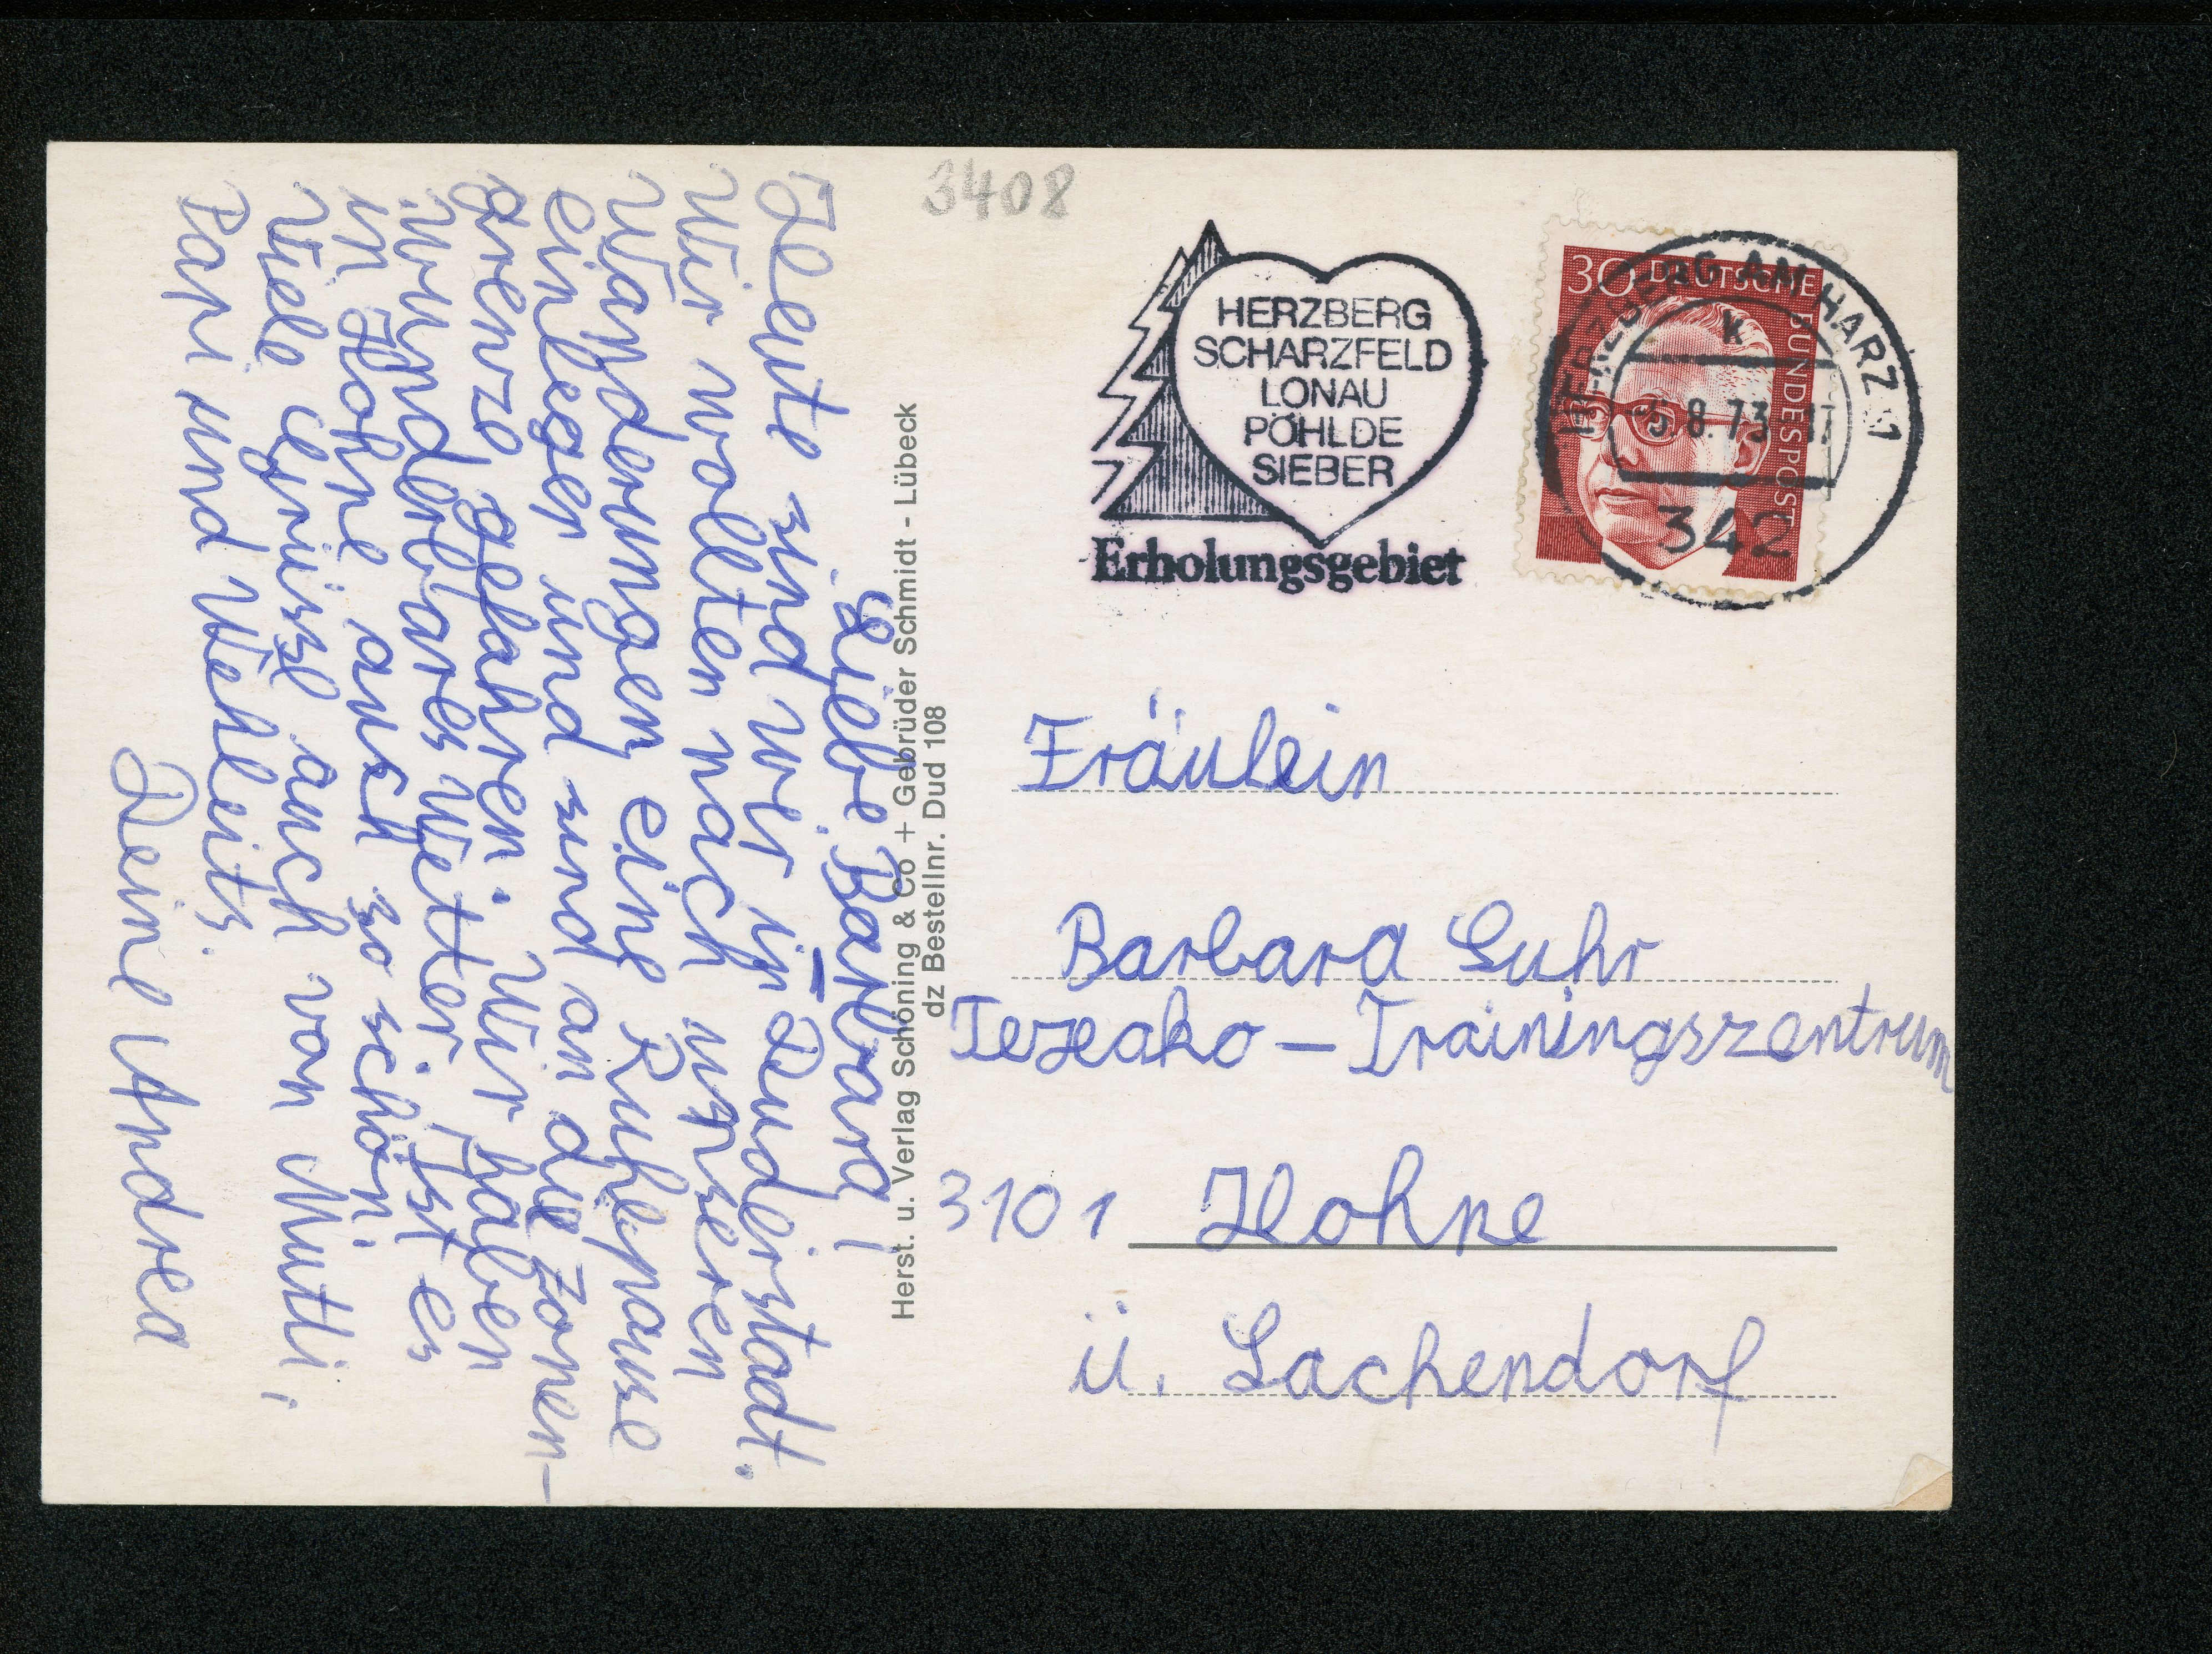 3408
HERZBERG
SCHARZFELD
LONAU
PÖHLDE
SIEBER
Erholungsgebiet
30 DEUTSCHE BUNDESPOST
HERZBERG AM HARZ 1
k
-5.8.73
342
Liebe Barbara!
Heute sind wir in Duderstadt.
Wir wollten nach unseren
Wanderungen eine Ruhepause
einlegen und sind an die Zonen-
grenze gefahren. Wir haben
wunderbares Wetter, Ist es
in Hohne auch so schön.
Viele Grüsse auch von Mutti,
Papi und Wehleits.
Deine Andrea
Herst. u. Verlag Schöning & Co + Gebrüder Schmidt - Lübeck
dz Bestellnr. Dud 108
Fräulein
Barbara Luhr
Texeako - Trainingszentrum
3101 Hohne
ü. Lachendorf